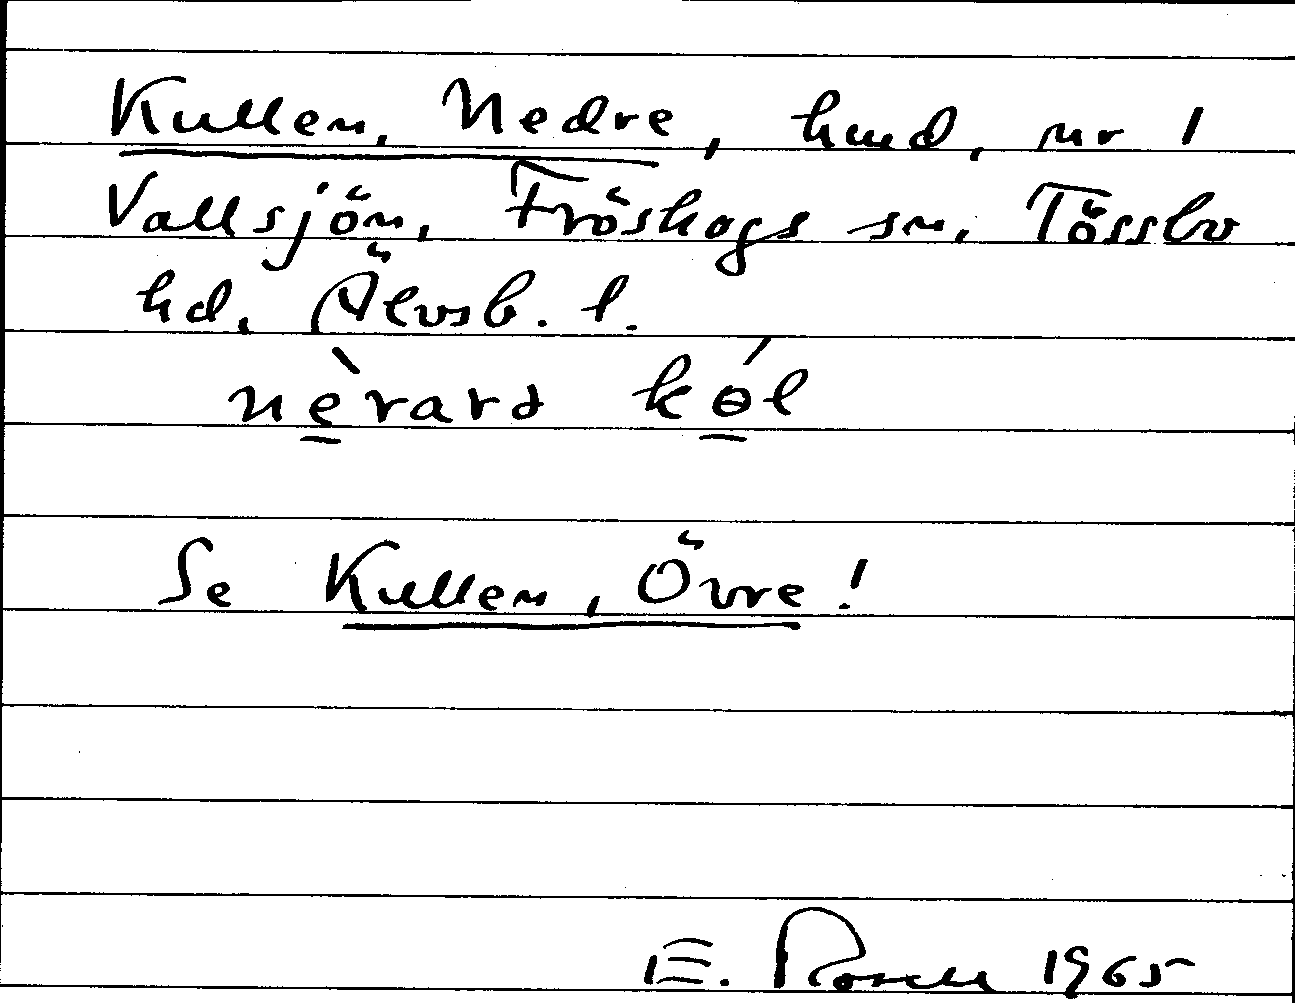 Kullen, Nedre, hmd, nr 1
Vallsjön, Fröskogs sn, Tössbo
hd, Älvsb. l.
nèrarə kɵ́l
Se Kullen, Övre!
E. Rosell 1965